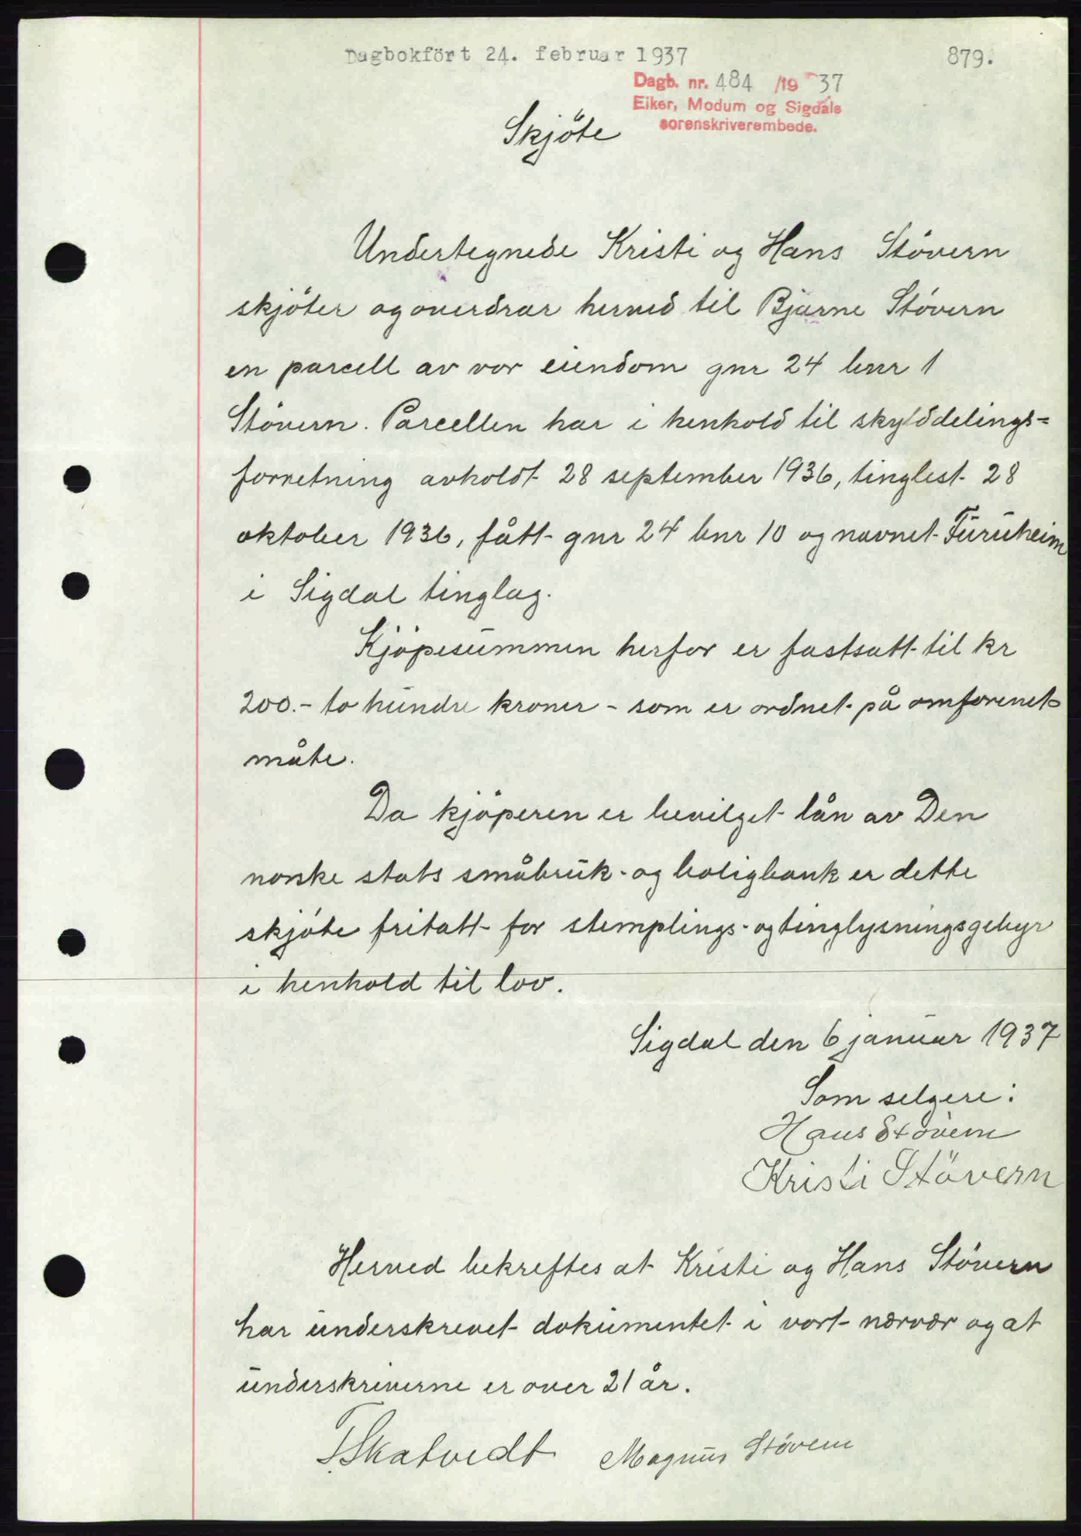 Dagbokført 24. februar 1937
879.
Dagb. nr. 484 /19 37
Eiker, Modum og Sigdals
sorenskriverembede.
Skjöte
Undertegnede Kristi og Hans Stövern
skjöter og overdrar herved til Bjarne Stövern
en parcell av vor eiendom gnr 24 bnr 1
Stövern. Parcellen har i henhold til skylddelings=
forretning avholdt 28 september 1936, tinglest 28
oktober 1936, fått gnr 24 bnr 10 og navnet Furuheim
i Sigdal tinglag.
Kjöpesummen herfor er fastsatt til kr
200.- to hundre kroner - som er ordnet på omforenet
måte.
Da kjöperen er bevilget lån av Den
norske stats småbruk- og boligbank er dette
skjöte fritatt for stemplings- og tinglysningsgebyr
i henhold til lov.
Sigdal den 6 januar 1937
Som selgere:
Hans Stövern
Kristi Stövern
Herved bekreftes at Kristi og Hans Stövern
har underskrevet dokumentet i vort nærvær og at
underskriverne er over 21 år.
T. Skatvedt Magnus Stövern